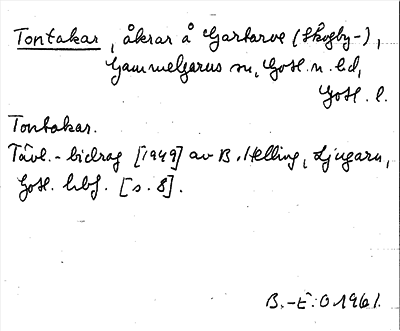 Tontakar, åkrar å Gartarve (Skogby-),
Gammelgarns sn, Gotl. n. hd,
Gotl. l.
Tontakar.
Tävl.-bidrag [1949] av B. Helling, Ljugarn,
Gotl. hbf. [s. 8].
B.-E. O 1961.